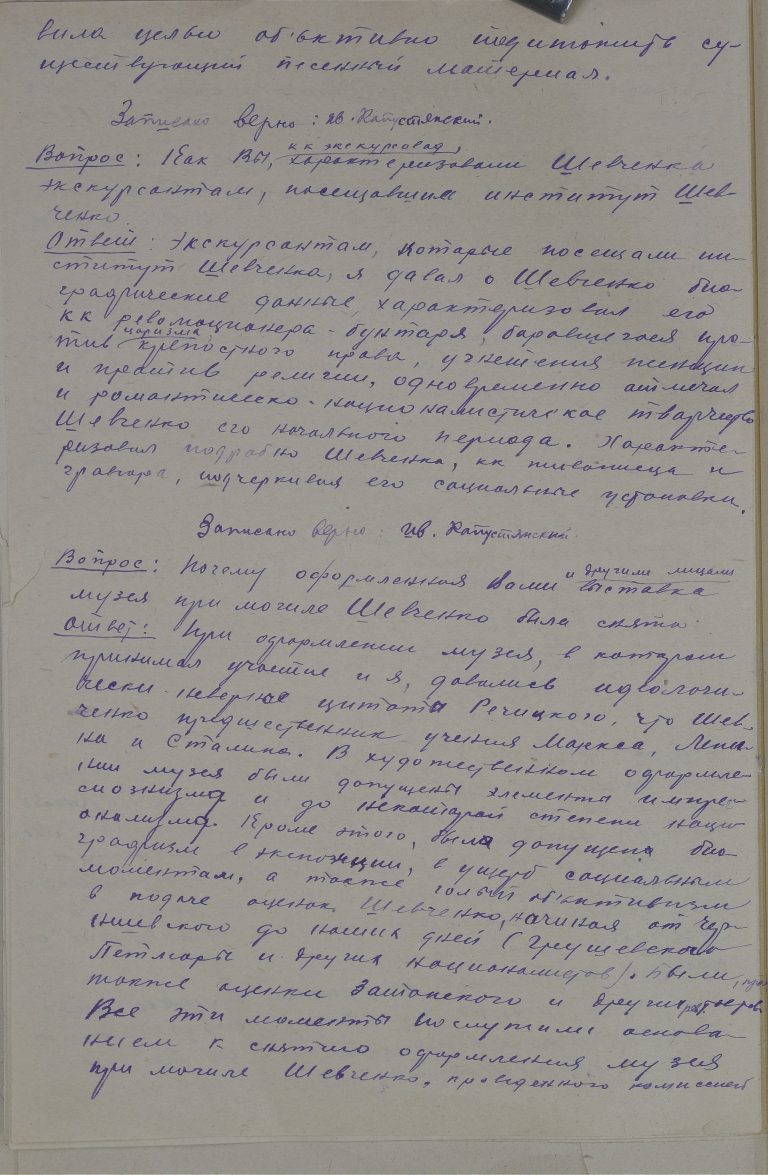 вила целью об'ективно подитожить су-
ществующий песенный материал.
Записано верно: Ив. Капустянский.
Вопрос: Как Вы, кк экскурсовод, характеризовали Шевченка
экскурсантам, посещавшим институт Шев-
ченко.
Ответ: Экскурсантам, которые посещали ин-
ститут Шевченка, я давал о Шевченко био-
графические данные, характеризовал его
кк революционера-бунтаря, боровшегося про-
тив царизма крепостного права, угнетения женщин
и против религии, одновременно отмечал
и романтическо-националистическое творчество
Шевченко его начального периода. Характе-
ризовал подробно Шевченка, кк живописца и
гравюра, подчеркивая его социальные установки.
Записано верно: Ив. Капустянский
Вопрос: Почему оформленная Вами и другими лицами выставка
музея при могиле Шевченко была снята
Ответ: При оформлении музея, в котором
принимал участие и я, давались идеологи-
чески-неверные цитаты Речицкого, что Шев-
ченко предшественник учения Маркса, Лени-
на и Сталина. В художественном оформле-
нии музея были допущены элементы импрес-
сионизма и до некоторой степени наци-
онализма. Кроме этого, была допущена био-
графизм в экспозиции, в ущерб социальным
моментам, а также голый объективизм
в подаче оценок Шевченко, начиная от Чер-
нышевского до наших дней (Грушевского
Петлюры и других националистов). Были,
также оценки Затонского и других
Все эти моменты послужили основа-
нием к снятию оформления музея
при могиле Шевченко, проведенного комиссией